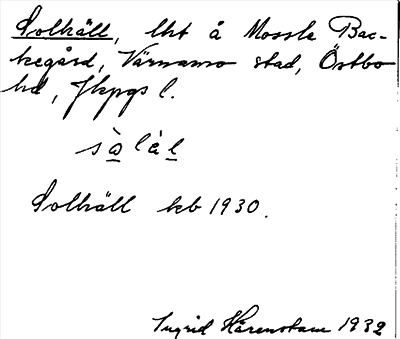 Solhäll, lht å Mossle Bac-
kegård, Värnamo stad, Östbo
hd, Jkpgs l.
Solhäll kb 1930.
Ingrid Hårenstam 1932